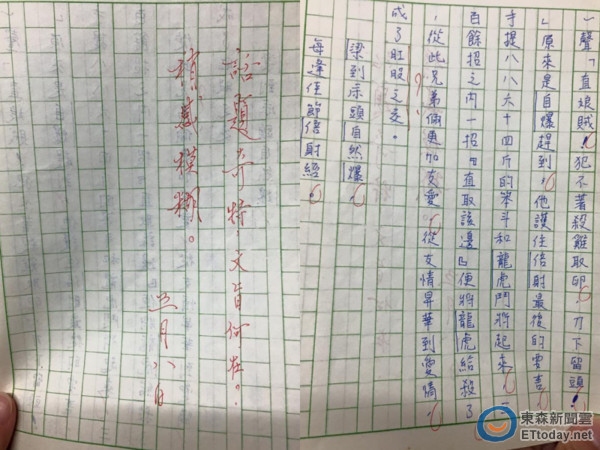 一聲「直娘賊!犯不著殺雞取卵。刀下留頭!
」原來是自爆趕到。他護住倍射最後的要害,
手提八八六十四斤的笨斗和龍虎鬥將起來。
百餘招之內一招『直取該邊』便將龍虎給殺了
,從此兄弟倆更加友愛。從友情昇華到愛情,
成了肛股之交。
梁到床頭自然爆。
每逢佳節倍射
話題奇特 文旨何在?
模糊。
三月八日
東森新聞雲
ETtoday.net